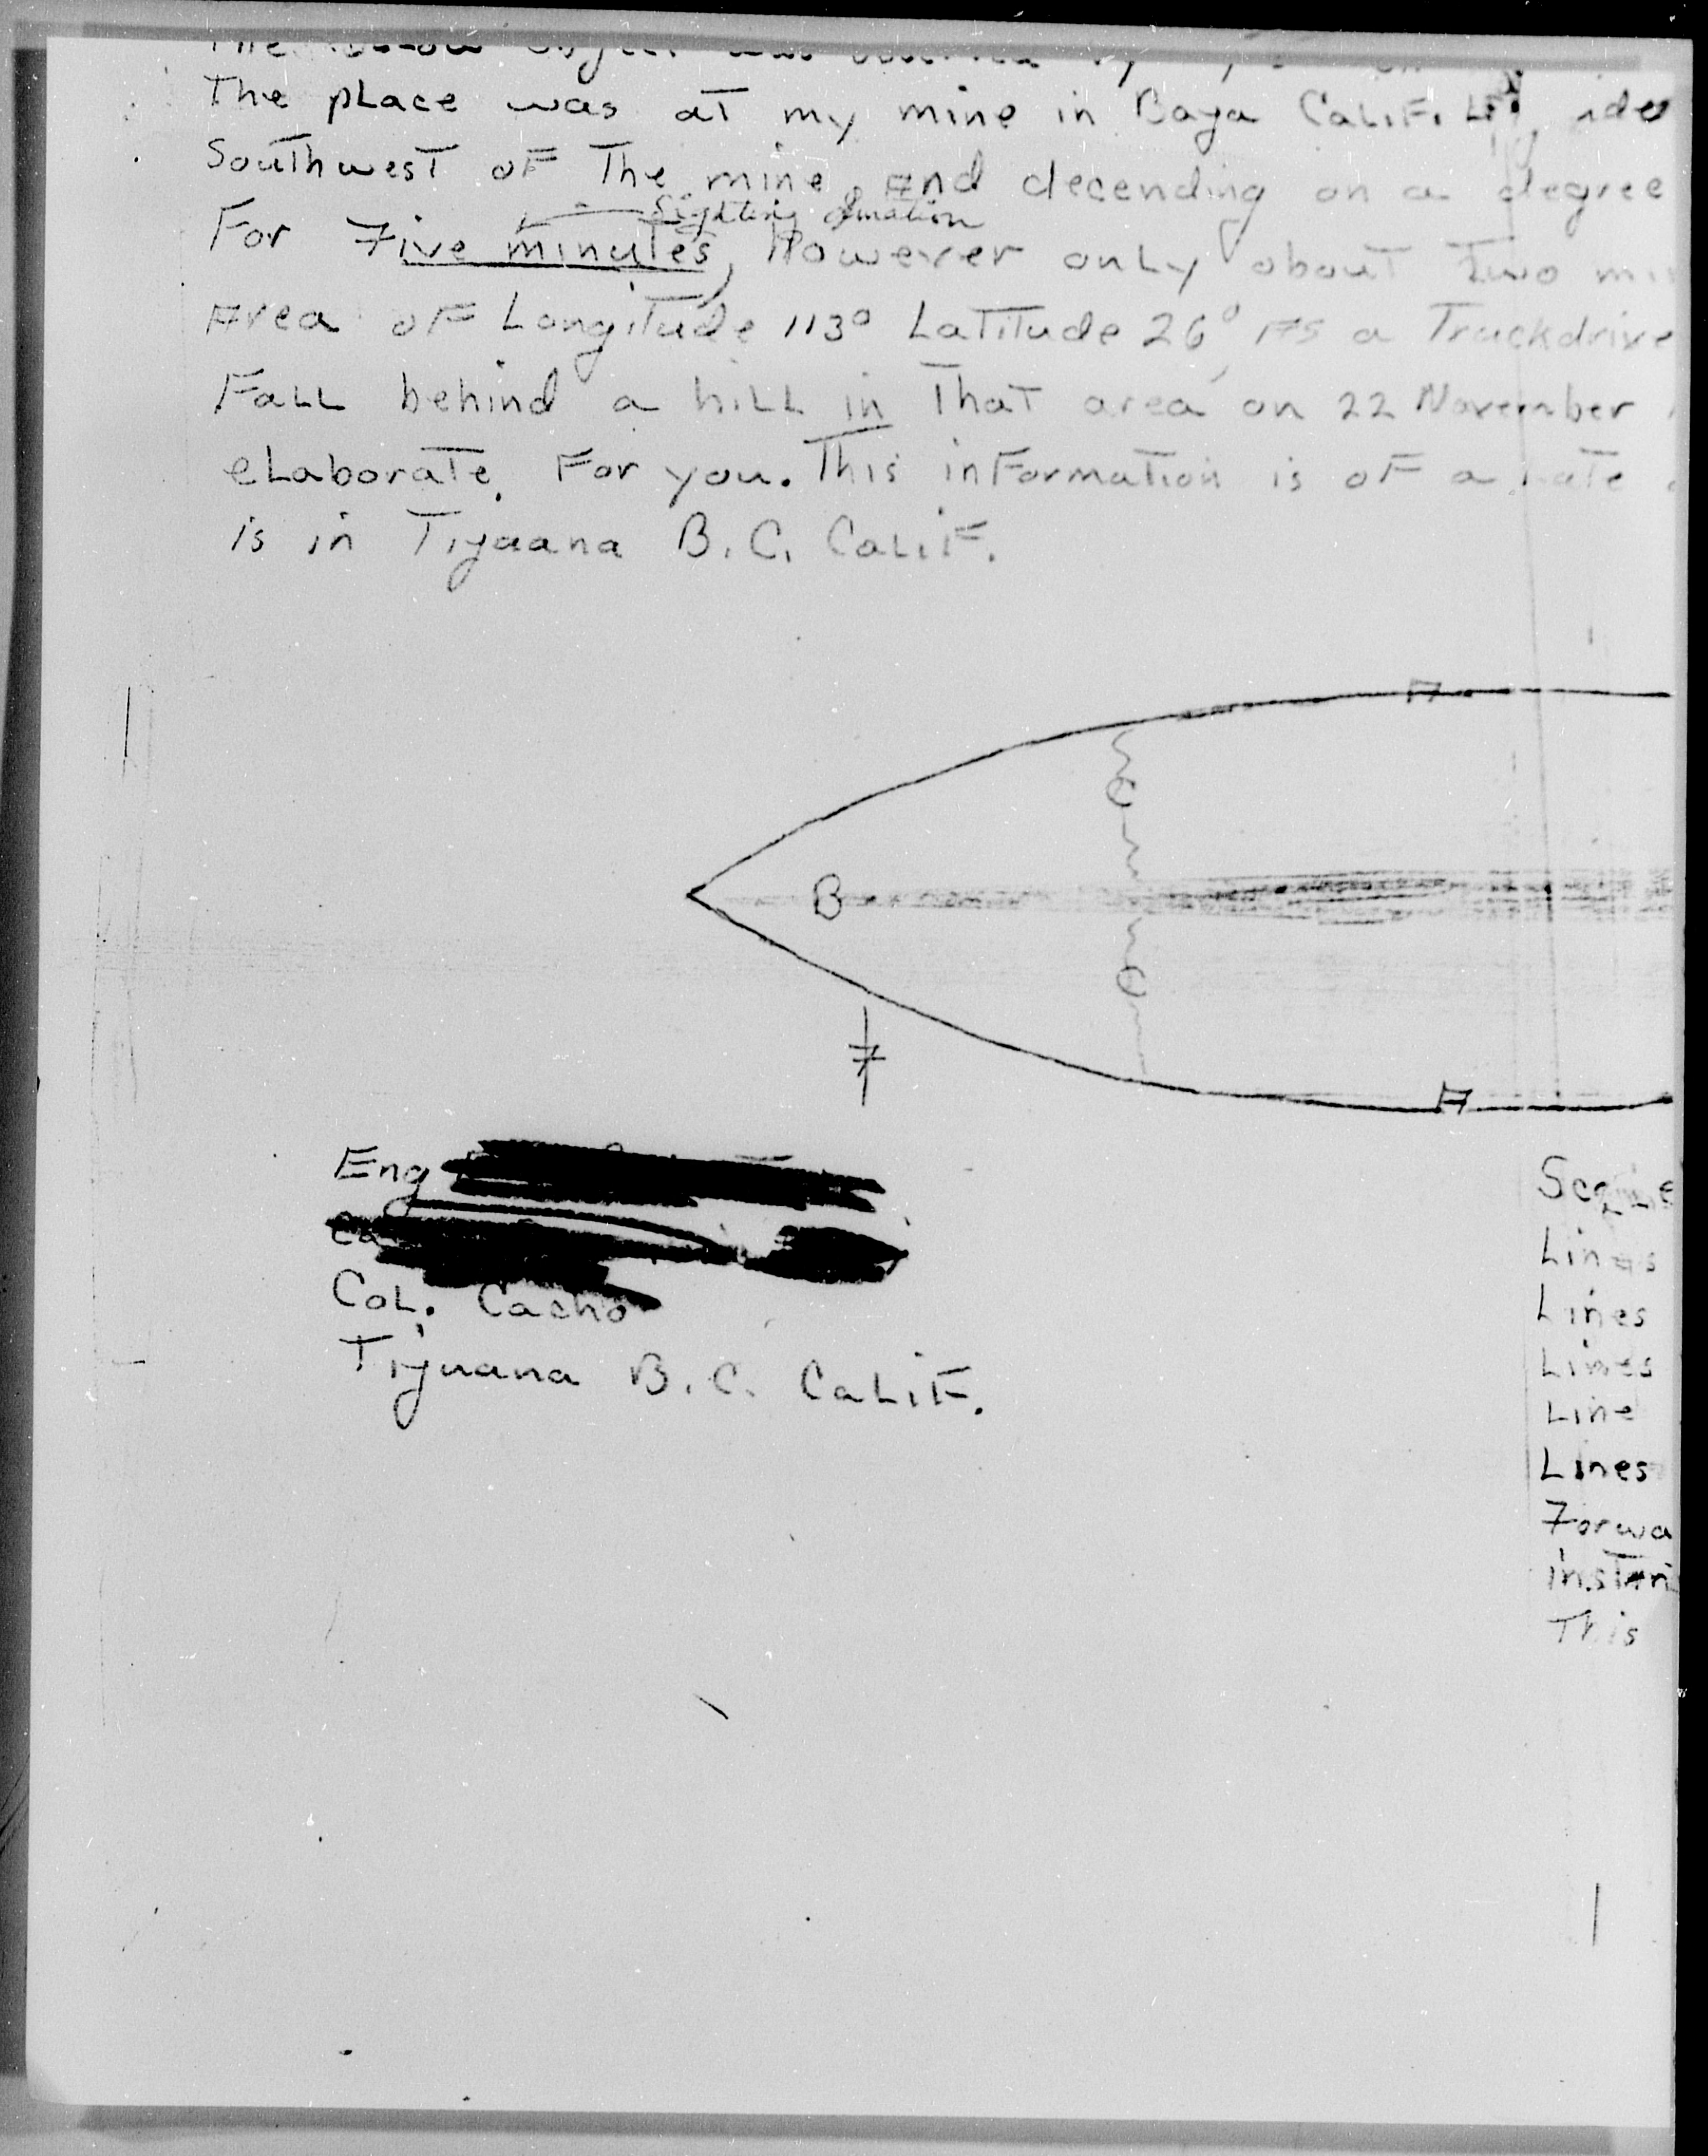 The place was at my mine in Baya CaLiF.
Southwest oF The mine, And decending on a degree
Sighting duration
For Five minutes, However only about Two
Area oF Longitude 113° Latitude 26°, As a Truckdrive
FaLL behind a hiLL in That area on 22 November
eLaborate. For you. This inFormation is oF a Late
is in Tijuana B.C. CaLiF.
A
C
B
C
F
A
Eng
CoL. Cacho
Tijuana B.C. CaLiF.
Lines
Lines
Lines
Line
Lines
Forwa
This